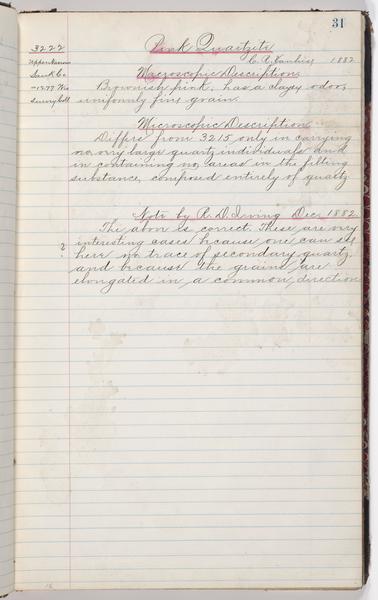 31
3222 Pink Quartzite
Upper Narrows C. R. Vanhise 1882
Sauk Co Macroscopic Description
Wis Brownish pink; has a clayey odor;
uniformly fine grain.
Microscopic Description
Differs from 3215 only in carrying
no very large quartz individuals and
in containing no areas in the filling
substance, composed entirely of quartz
Note by R. D. Irving Dec. 1882.
The above is correct. These are very
? interesting cases because one can see
here no trace of secondary quartz,
and because the grains are
elongated in a common direction